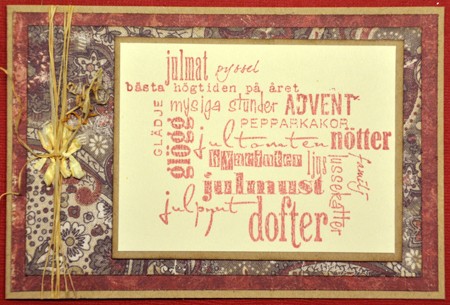 julmat pyssel
bästa högtiden på året
mysiga stunder ADVENT
GLÄDJE
glögg
PEPPARKAKOR
jultomten nötter
Hyacinter ljus
familj
lussekatter
julmust
julpynt
dofter